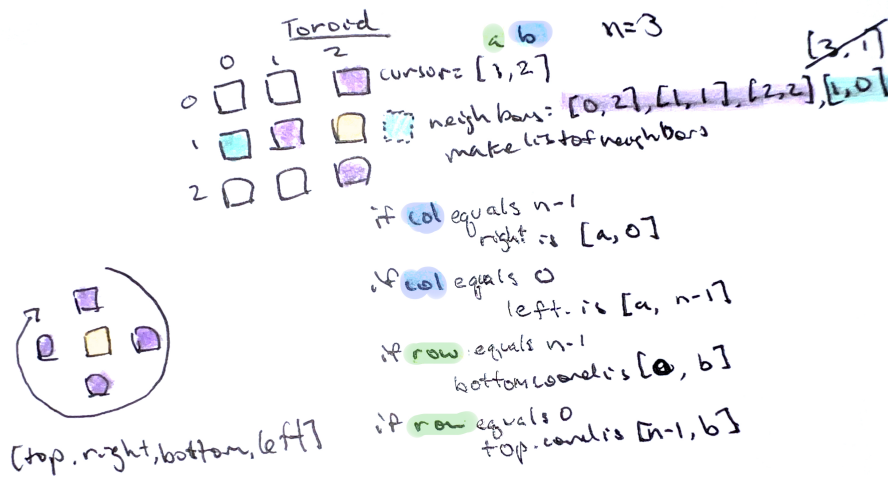 Toroid
n=3
a b
[3,1]
0 1 2
cursor= [1,2]
0
neighbors= [0,2],[1,1],[2,2],[1,0]
1
make list of neighbors
2
if col equals n-1
right is [a,0]
if col equals 0
left. is [a, n-1]
if row equals n-1
bottom coord is [0, b]
if row equals 0
top. coord is [n-1, b]
[top, right, bottom, left]